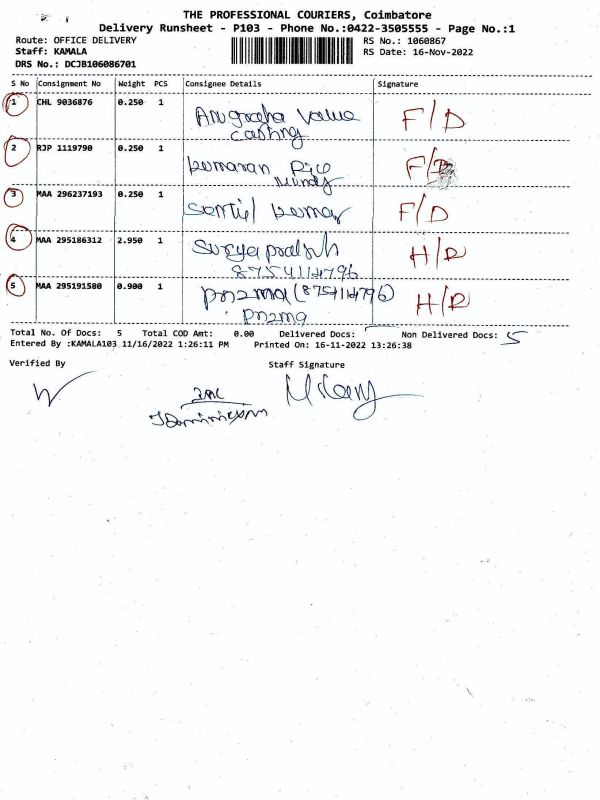 THE PROFESSIONAL COURIERS, Coimbatore
Delivery Runsheet - P103 - Phone No.:0422-3505555 - Page No.:1
Route: OFFICE DELIVERY RS No.: 1060867
Staff: KAMALA RS Date: 16-Nov-2022
DRS No.: DCJB106086701
S No Consignment No Weight PCS Consignee Details Signature
1 CHL 9036876 0.250 1 Anugraha Value F/D
casting
2 RJP 1119790 0.250 1 kumaran
3 MAA 296237193 0.250 1 kumar F/D
4 MAA 295186312 2.950 1 H/R
8754114796
5 MAA 295191580 0.900 1 (8754114796) H/R
Total No. Of Docs: 5 Total COD Amt: 0.00 Delivered Docs: Non Delivered Docs: 5
Entered By :KAMALA103 11/16/2022 1:26:11 PM Printed On: 16-11-2022 13:26:38
Verified By Staff Signature